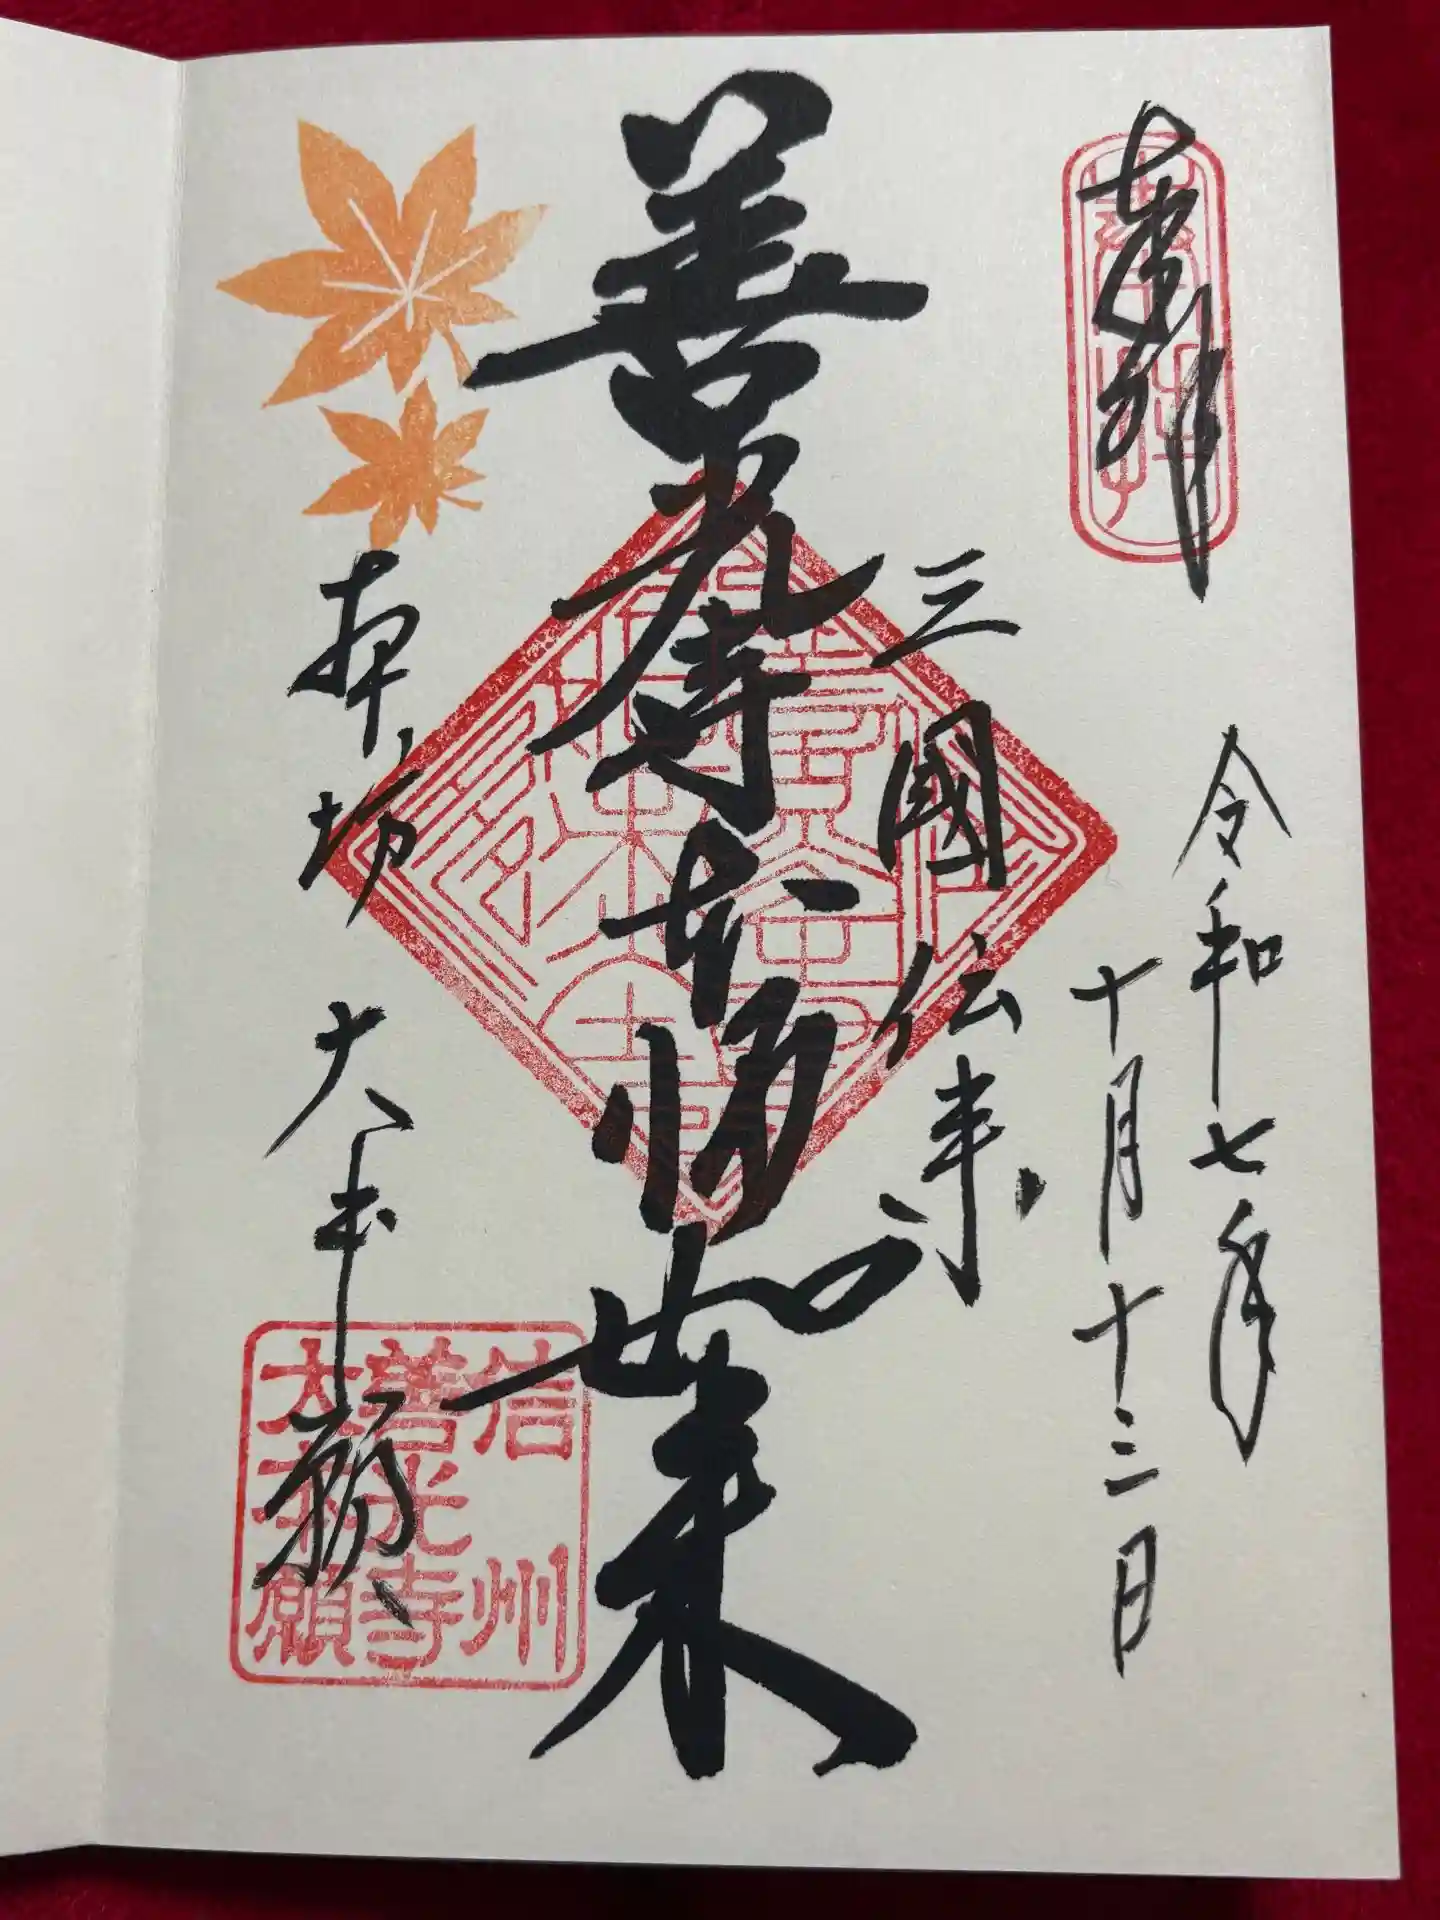 奉拝
令和七年
十月十三日
三國伝来
善光寺本師如来
本坊 大本願
信州
善光寺
大本願